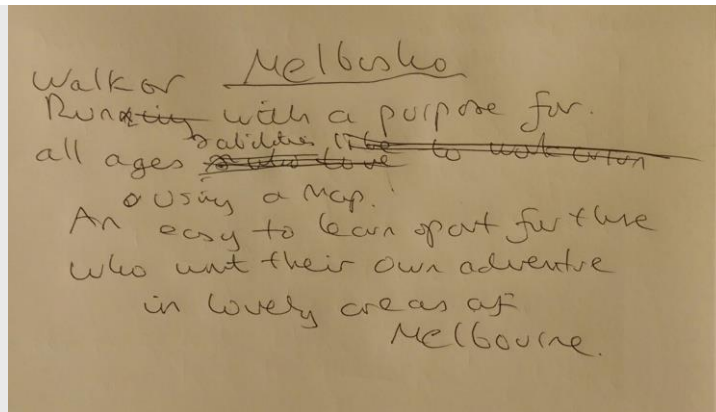 Melbusho
Walk or
Run with a purpose for.
& abilities
all ages
& using a map.
An easy to learn sport for those
who want their own adventure
in lovely areas of
Melbourne.